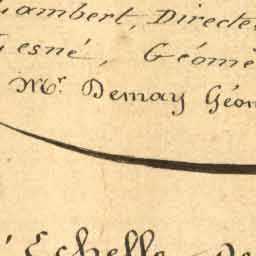 Lambert, Directe
Gesné, Géomè
Mr. Demay Géom
Echelle de